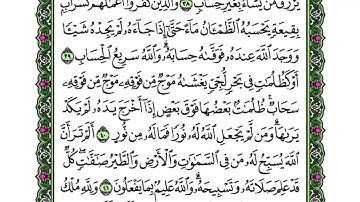 يَرْزُقُ مَن يَشَآءُ بِغَيْرِ حِسَابٍ ٣٨ وَٱلَّذِينَ كَفَرُوٓا۟ أَعْمَٰلُهُمْ كَسَرَابٍۭ
بِقِيعَةٍ يَحْسَبُهُ ٱلظَّمْـَٔانُ مَآءً حَتَّىٰٓ إِذَا جَآءَهُۥ لَمْ يَجِدْهُ شَيْـًٔا
وَوَجَدَ ٱللَّهَ عِندَهُۥ فَوَفَّىٰهُ حِسَابَهُۥ وَٱللَّهُ سَرِيعُ ٱلْحِسَابِ ٣٩
أَوْ كَظُلُمَٰتٍ فِى بَحْرٍ لُّجِّىٍّ يَغْشَىٰهُ مَوْجٌ مِّن فَوْقِهِۦ مَوْجٌ مِّن فَوْقِهِۦ
سَحَابٌ ظُلُمَٰتٌۢ بَعْضُهَا فَوْقَ بَعْضٍ إِذَآ أَخْرَجَ يَدَهُۥ لَمْ يَكَدْ
يَرَىٰهَا وَمَن لَّمْ يَجْعَلِ ٱللَّهُ لَهُۥ نُورًا فَمَا لَهُۥ مِن نُّورٍ ٤٠ أَلَمْ تَرَ أَنَّ
ٱللَّهَ يُسَبِّحُ لَهُۥ مَن فِى ٱلسَّمَٰوَٰتِ وَٱلْأَرْضِ وَٱلطَّيْرُ صَٰٓفَّٰتٍ كُلٌّ
قَدْ عَلِمَ صَلَاتَهُۥ وَتَسْبِيحَهُۥ وَٱللَّهُ عَلِيمٌۢ بِمَا يَفْعَلُونَ ٤١ وَلِلَّهِ مُلْكُ